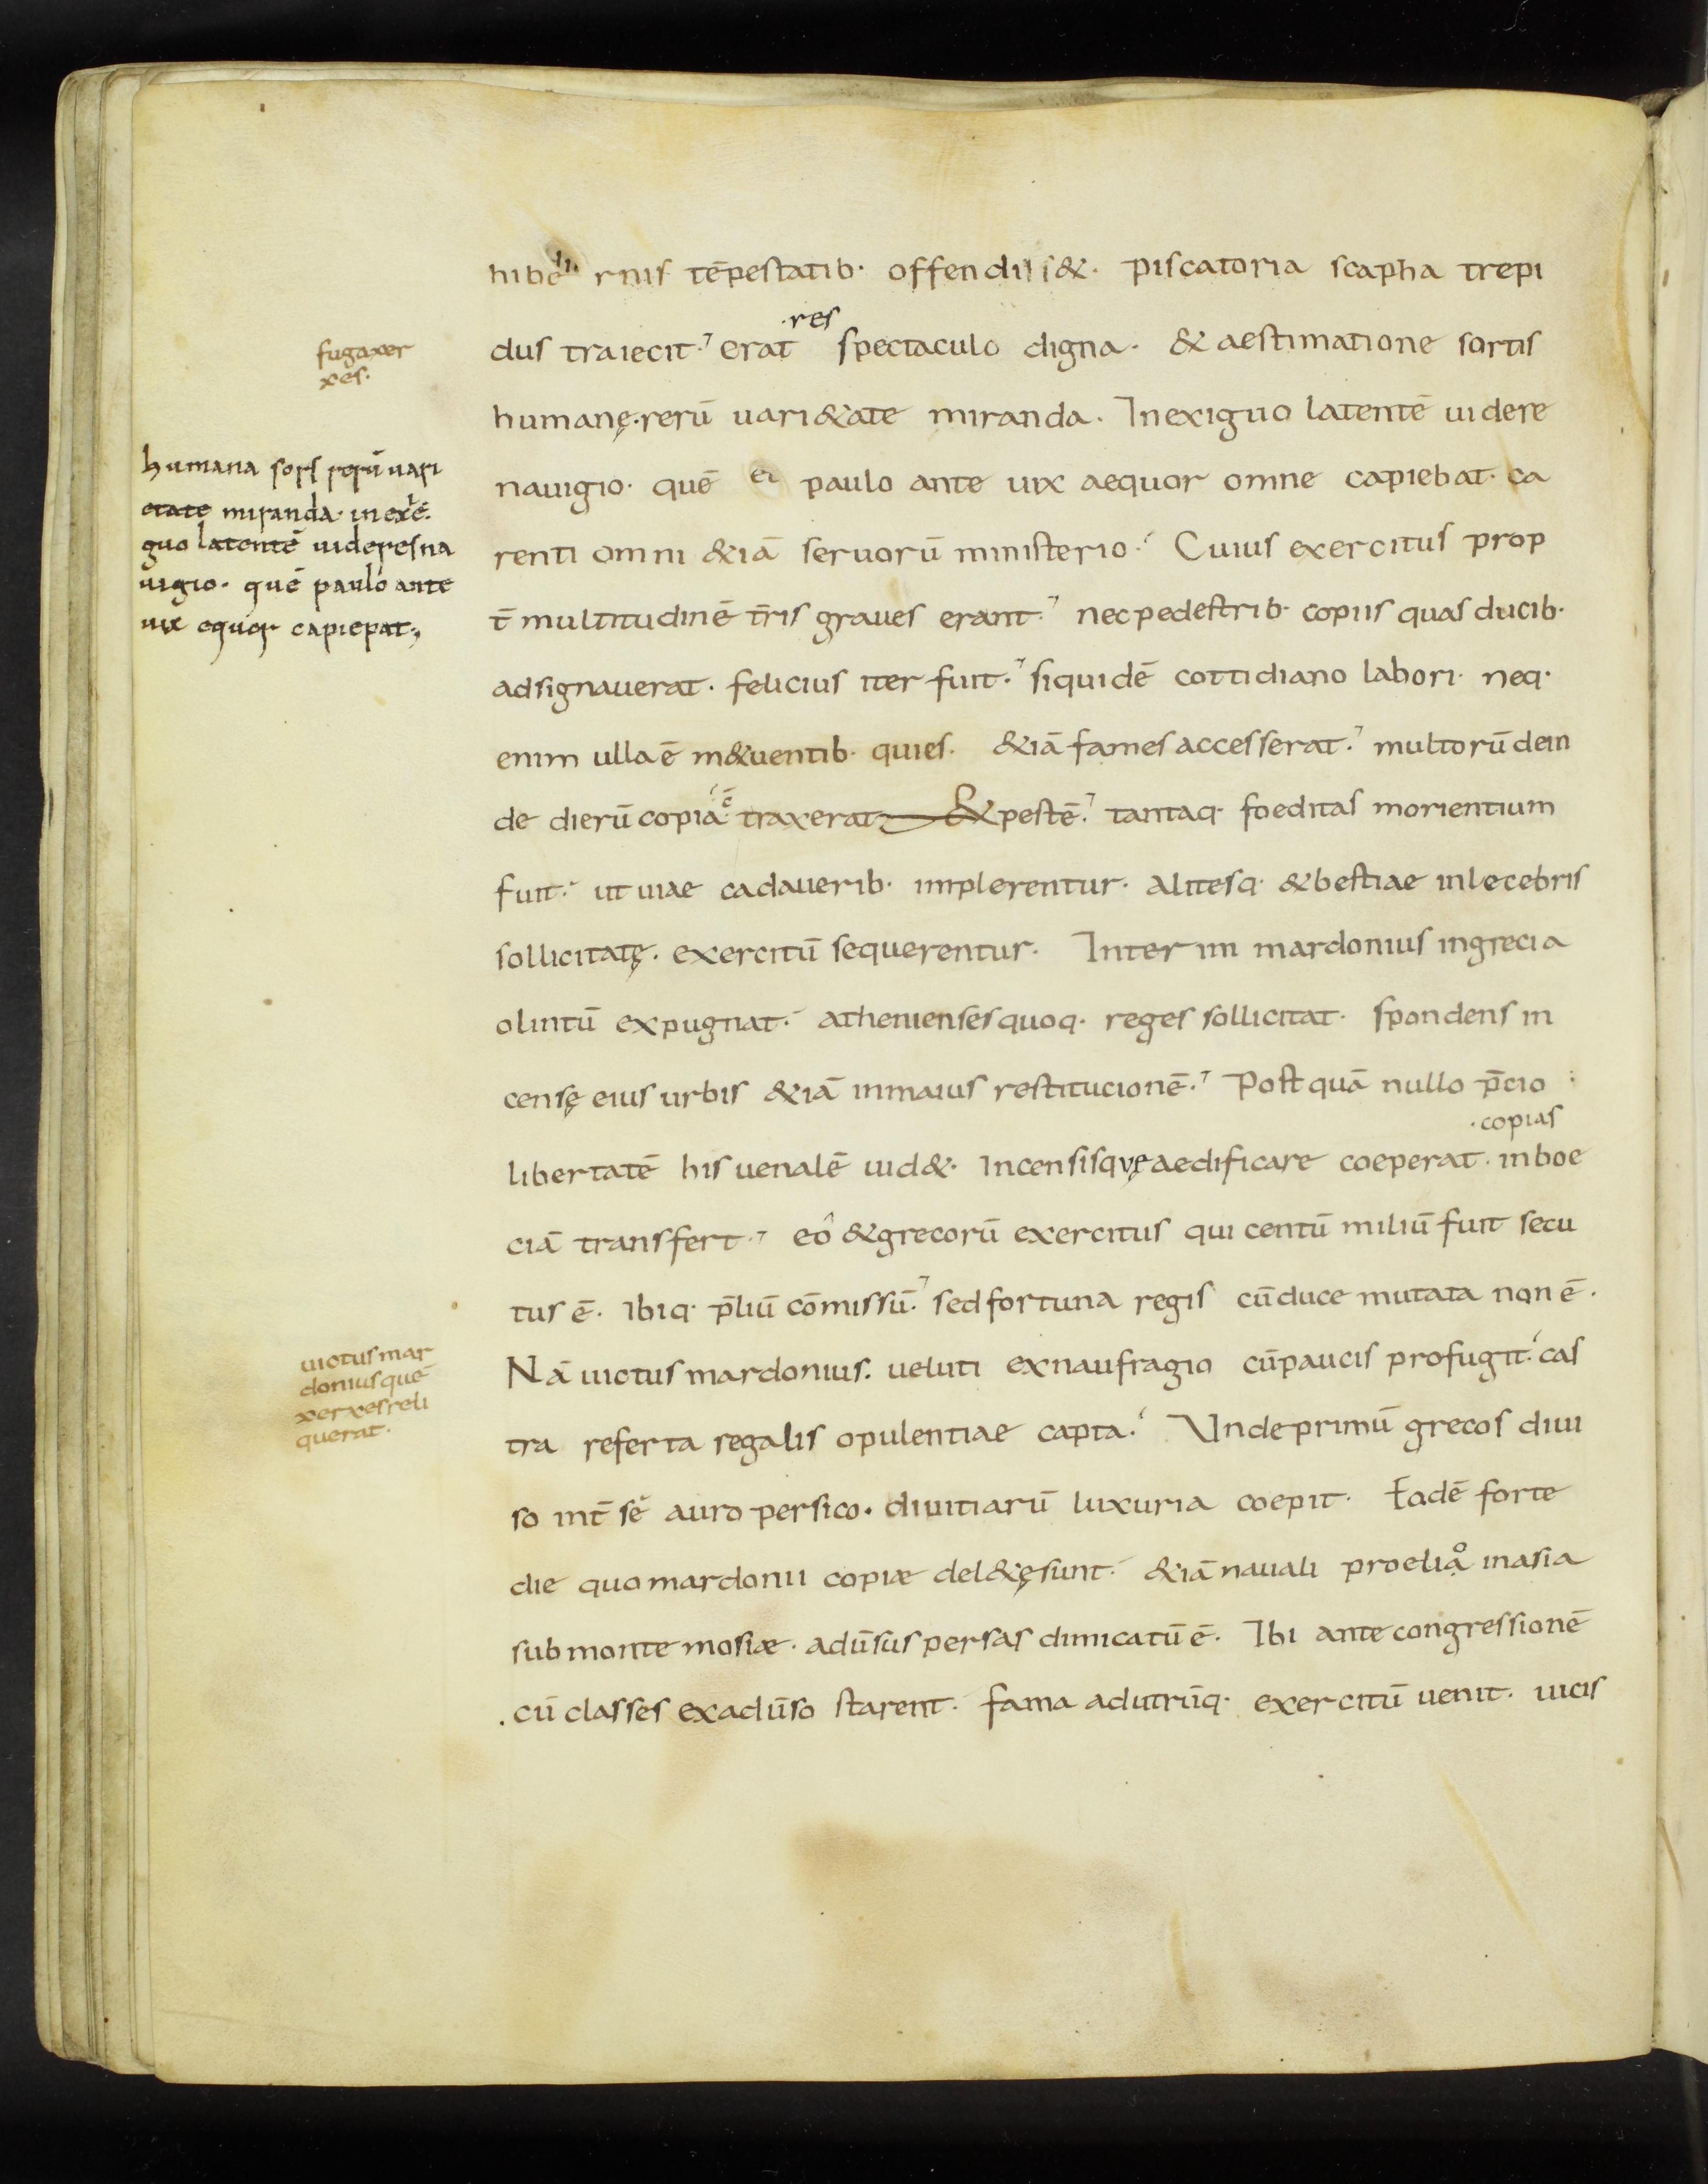 hibernis tēpestatib· offendiss&· piscatoria scapha trepi
·res
dus traiecit· erat spectaculo digna· & aestimatione sortis
fugaxer
xes·
humanę·rerū uari&ate miranda· Inexiguo latentē uidere
nauigio· quē ei paulo ante uix aequor omne capiebat· ca
humana sors rerū uari
etate miranda· inexi
guo latentē uideres na
uigio· quē paulo ante
uix equor capiepat;
renti omni &iā seruorū ministerio· Cuius exercitus prop
t̄ multitudinē t̄ris graues erant· nec pedestrib· copiis quas ducib·
adsignauerat· felicius iter fuit· siquidē cottidiano labori· neq·
enim ulla ē m&uentib· quies· &iā fames accesserat· multorū dein
de dierū copiā traxerat & pestē· tantaq· foeditas morientium
fuit· ut uiae cadauerib· implerentur· alitesq· & bestiae inlecebris
sollicitatę· exercitū sequerentur· Inter im mardonius ingrecia
olintū expugnat· athenienses quoq· reges sollicitat· spondens in
censę eius urbis &iā inmaius restitucionē· Post quā nullo p̄cio
·copias
libertatē his uenalē uid&· Incensisqvę aedificare coeperat· inboe
ciā transfert· eô & grecorū exercitus qui centū miliū fuit secu
tus ē· Ibiq· p̄liū cōmissū· sed fortuna regis cū duce mutata non ē·
Nā uictus mardonius· ueluti exnaufragio cū paucis profugit· cas
uictus mar
donius quē
xerxes reli
querat·
tra referta regalis opulentiae capta· Unde primū grecos diui
so int̄ sé auro persico· diuitiarū luxuria coepit· Eadē forte
die quo mardonii copiæ del&ę sunt· &iā nauali proeliạo inasia
sub monte mosiæ· adūsus persas dimicatū ē· Ibi ante congressionē
·cū classes exadūso starent· fama adutrūq· exercitū uenit· uicis